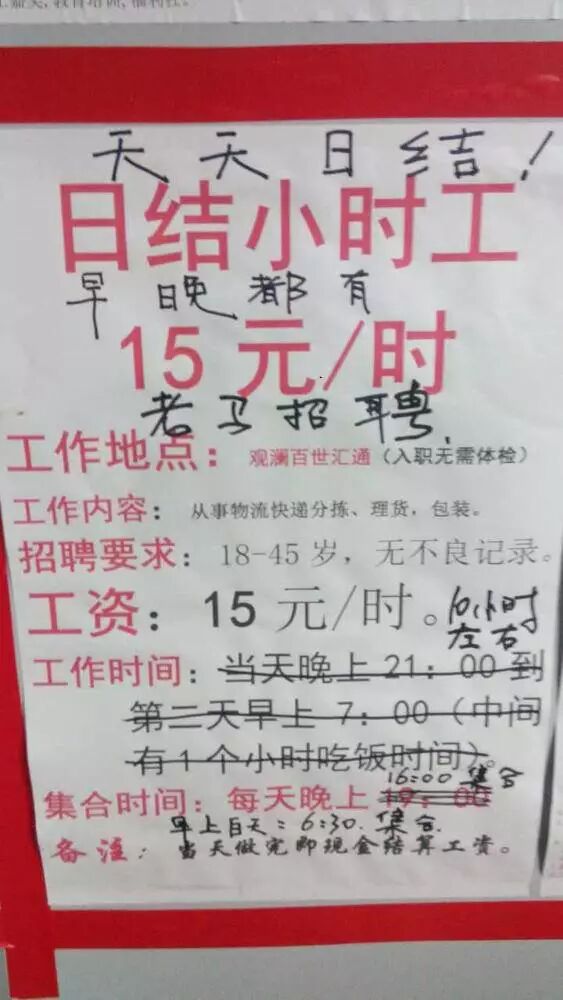 天天日结!
日结小时工
早晚都有
15元/时
老马招聘
工作地点：观澜百世汇通（入职无需体检）
工作内容：从事物流快递分拣、理货，包装。
招聘要求：18-45岁，无不良记录。
工资：15元/时。10小时左右
工作时间：当天晚上21：00到
第二天早上7：00（中间
有1个小时吃饭时间）。
16:00集合
集合时间：每天晚上19：00
早上白天：6:30.集合.
备注：当天做完即现金结算工资。